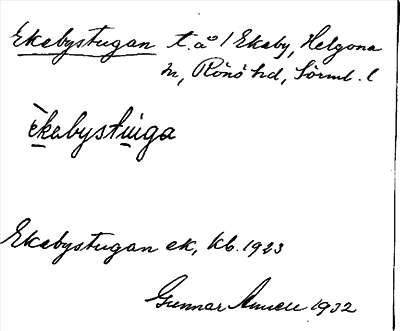 Ekebystugan t. å / Ekeby, Helgona
sn, Rönö hd, Sörml. l
èkebystuga
Ekebystugan ek, kb. 1923
Gunnar 1932